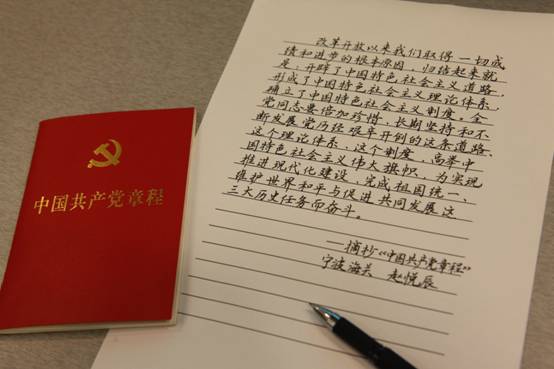 中国共产党章程
改革开放以来我们取得一切成
绩和进步的根本原因,归结起来就
是:开辟了中国特色社会主义道路,
形成了中国特色社会主义理论体系,
确立了中国特色社会主义制度。全
党同志要倍加珍惜、长期坚持和不
断发展党历经艰辛开创的这条道路、
这个理论体系、这个制度,高举中
国特色社会主义伟大旗帜,为实现
推进现代化建设、完成祖国统一、
维护世界和平与促进共同发展这
三大历史任务而奋斗。
—摘抄《中国共产党章程》
宁波海关 赵悦辰